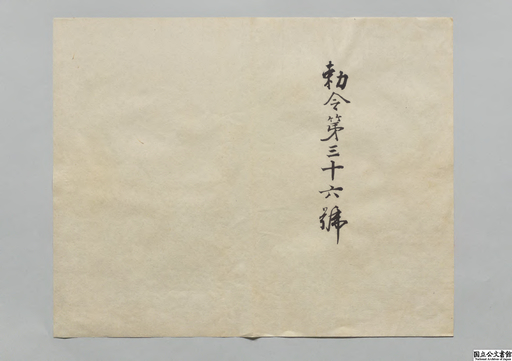 勅令第三十六號
国立公文書館
National Archives of Japan